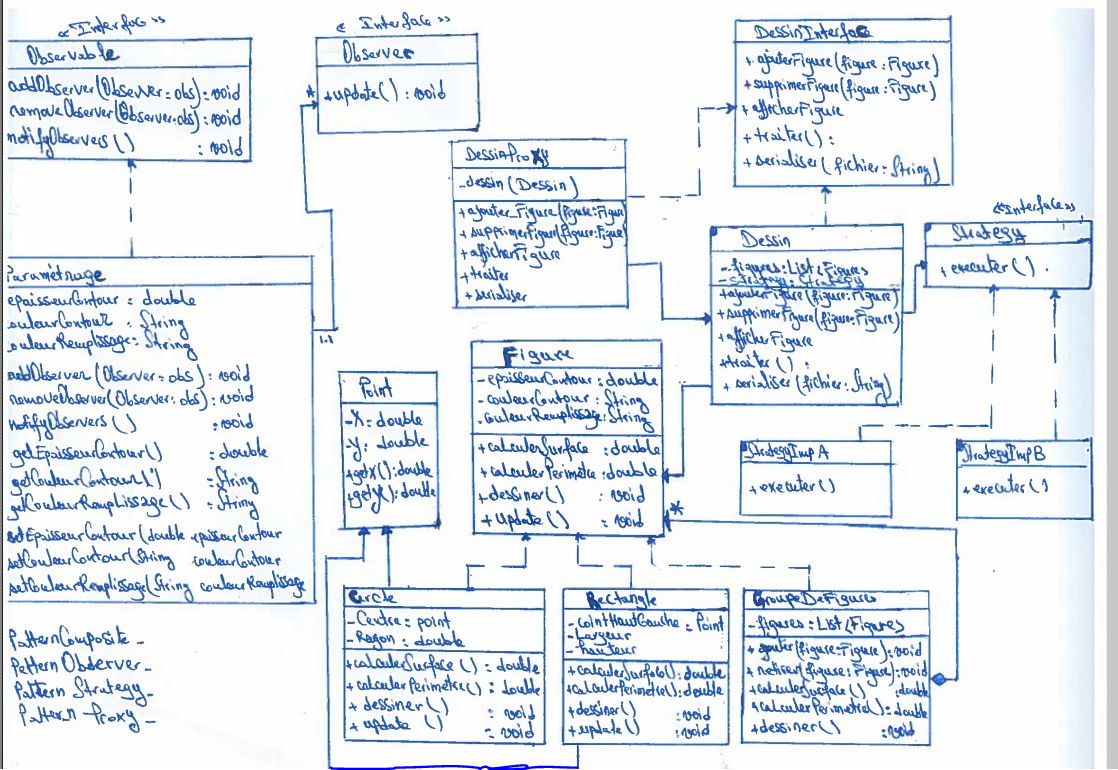 << Interface >>
Observable
addObserver(Observer: obs) : void
removeObserver(Observer: obs) : void
notifyObservers() : void
< Interface >>
Observer
*
+ update() : void
DessinInterface
+ ajouterFigure(figure: Figure)
+ supprimerFigure(figure: Figure)
+ afficherFigure
+ traiter() :
+ serialiser(fichier: String)
DessinProxy
- dessin (Dessin)
+ ajouter_Figure(figure: Figur
+ supprimerFigur(figure: Figure
+ afficherFigure
+ traiter
+ serialiser
Dessin
- figures: List<Figures
- strategy: Strategy
+ ajouterFigure(figure: Figure)
+ supprimerFigure(figure: Figure)
+ afficherFigure
+ traiter () :
+ serialiser(fichier: String)
<<Interface>>
Strategy
+ executer() .
StrategyImpA
+ executer()
StrategyImpB
+ executer()
Paramétrage
epaisseurContour : double
couleurContour : String
couleurRemplissage: String
addObserver (Observer: obs) : void
removeObserver(Observer: obs) : void
notifyObservers () : void
getEpaisseurContour() : double
getCouleurContour() : String
getCouleurRemplissage() : String
setEpaisseurContour(double epaisseurContour
setCouleurContour(String couleurContour
setCouleurRemplissage(String couleurRemplissage
1.1
Point
- X: double
- Y: double
+ getx(): double
+ gety(): double
Figure
- epaisseurContour : double
- couleurContour : String
- couleurRemplissage: String
+ calculerSurface : double
+ calculerPerimetre : double
+ dessiner() : void
+ update () : void
*
Circle
- Centre : point
- Rayon : double
+ calculerSurface () : double
+ calculerPerimetre() : double
+ dessiner() : void
+ update () : void
Rectangle
- cointHautGauche : Point
- Largeur
- hauteur
+ calculerSurface(): double
+ calculerPerimetre(): double
+ dessiner() : void
+ update() : void
GroupeDeFigures
- figures : List<Figures
+ ajouter(figure: Figure): void
+ retirer(figure: Figure): void
+ calculerSurface () double
+ calculerPerimetre() : double
+ dessiner() : void
Pattern Composite -
Pattern Observer -
Pattern Strategy -
Pattern Proxy -